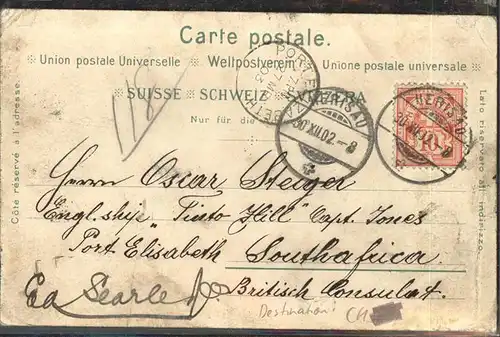 Carte postale.
Union postale Universelle Weltpostverein Unione postale universale
SUISSE SCHWEIZ SVIZZERA
Nur für die
Côte réservé à l'adresse.
Lato riservato all indirizzo.
PORT ELIZABETH
HERISAU
30 XII.02 -8
HERISAU
30 XII.02 -8
Herrn Oscar Steiger
Engl. shyje "Tinto Hill" Capt. Jones
Port Elisabeth Southafrica
Ed Searle
Britisch Consulat.
Destination: CH